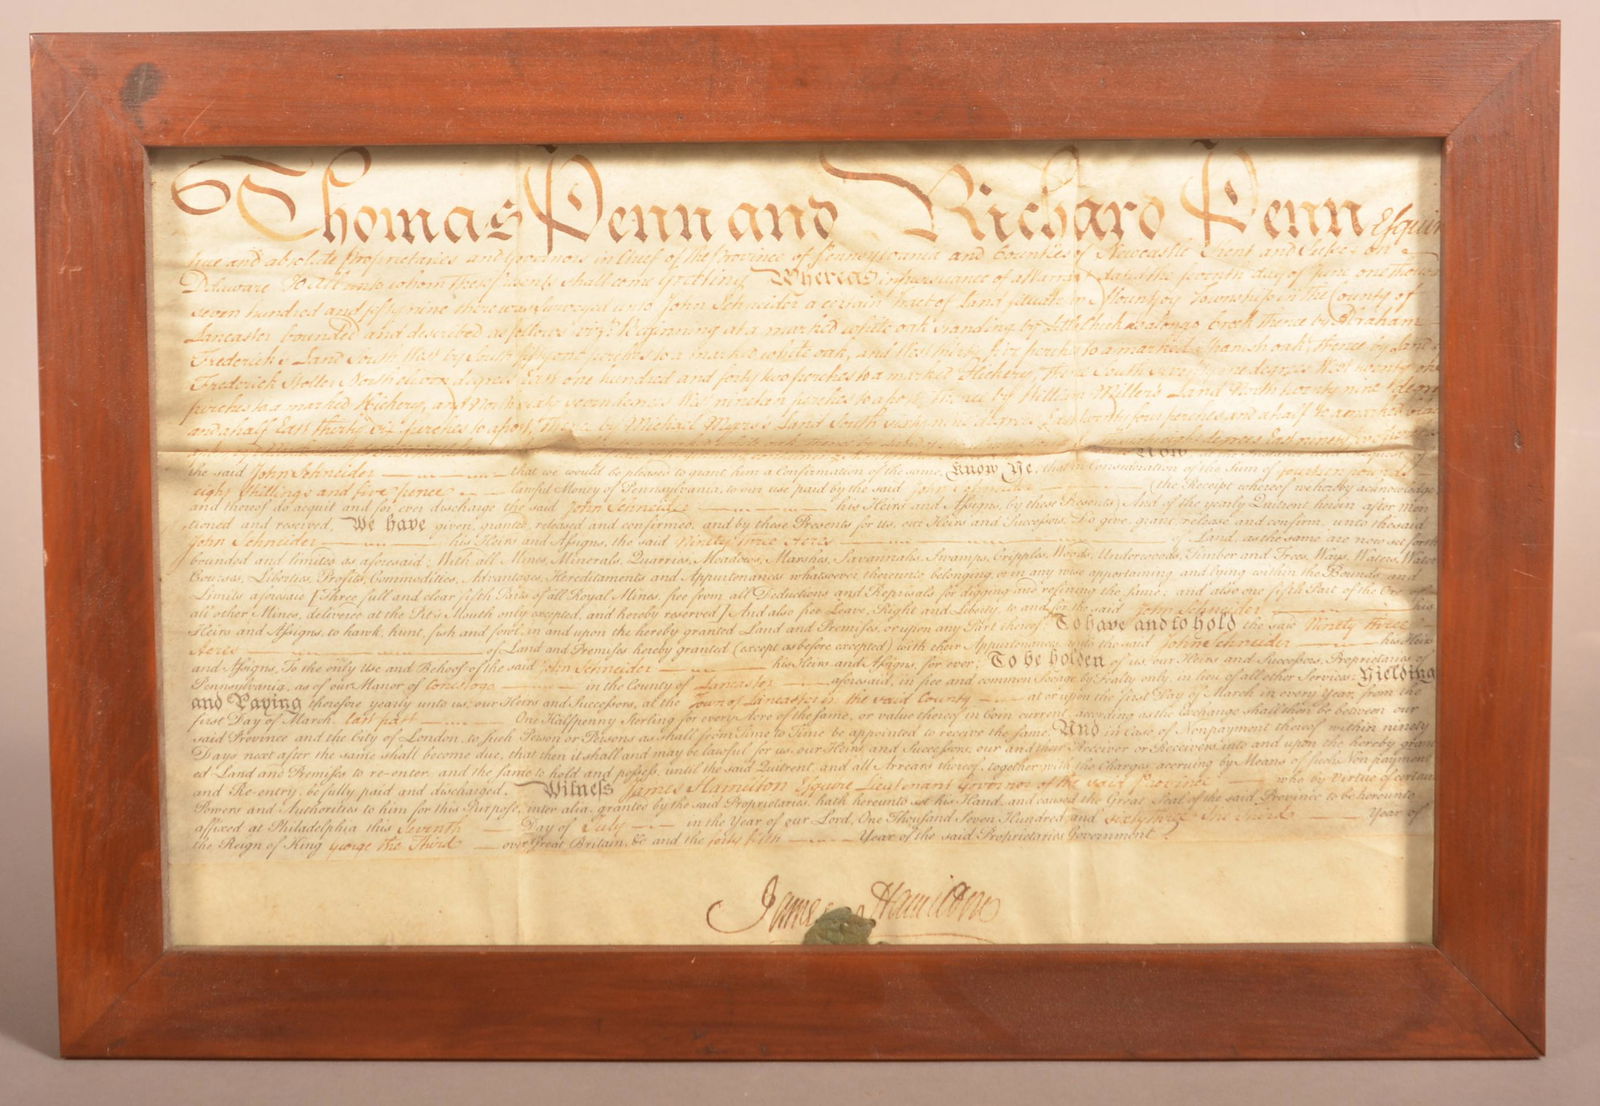 Thomas Penn and Richard Penn Esquires
true and absolute Proprietaries and Governors in Chief of the Province of Pennsylvania and Counties of Newcastle Kent and Sussex on
Delaware To All unto whom these Presents shall come Greeting Whereas in pursuance of a Warrant dated the seventh day of June one thousand
seven hundred and fifty nine there was surveyed unto John Schneider a certain Tract of Land situate in Mountjoy Township in the County of
Lancaster bounded and described as follows viz: Beginning at a marked white oak standing by Little Chickasalongo Creek thence by Abraham
Frederick's Land South West by South fifty one perches to a marked white oak, and West thirty five perches to a marked Spanish oak, thence by Land of
Frederick Holter North degrees East one hundred and forty two perches to a marked Hickery, thence South seventy nine degrees West twenty one
perches to a marked Hickery, and North sixty seven degrees West nineteen perches to a post, thence by William Miller's Land North twenty nine degrees
and a half East thirty six perches to a post, thence by Michael Meyers's Land South sixty nine degrees East forty four perches and a half to a marked
degrees East ninety two perches
Now at the Instance and Request of
the said John Schneider that we would be pleased to grant him a Confirmation of the same. Know Ye, that in Consideration of the Sum of fourteen pounds
eight shillings and five pence lawful Money of Pennsylvania, to our use paid by the said John Schneider (the Receipt whereof we hereby acknowledge
and thereof do acquit and for ever discharge the said John Schneider his Heirs and Assigns, by these Presents) And of the yearly Quitrent herein after men
tioned and reserved, We have given, granted, released and confirmed, and by these Presents for us, our Heirs and Successors, Do give, grant, release and confirm, unto the said
John Schneider his Heirs and Assigns, the said Ninety three Acres of Land, as the same are now set forth
bounded and limited as aforesaid; With all Mines, Minerals, Quarries, Meadows, Marshes, Savannahs, Swamps, Cripples, Woods, Underwoods, Timber and Trees, Ways, Waters, Water
Courses, Liberties, Profits, Commodities, Advantages, Hereditaments and Appurtenances whatsoever thereunto belonging, or in any wise appertaining and lying within the Bounds and
Limits aforesaid [Three full and clear fifth Parts of all Royal Mines, free from all Deductions and Reprisals for digging and refining the same; and also one fifth Part of the Ore of
all other Mines, delivered at the Pit's Mouth only excepted, and hereby reserved] And also free Leave, Right and Liberty, to and for the said John Schneider his
Heirs and Assigns, to hawk, hunt, fish and fowl, in and upon the hereby granted Land and Premises, or upon any Part thereof. To have and to hold the said Ninety three
Acres of Land and Premises hereby granted (except as before excepted) with their Appurtenances, unto the said John Schneider his Heirs
and Assigns, To the only Use and Behoof of the said John Schneider his Heirs and Assigns, for ever; To be holden of us, our Heirs and Successors, Proprietaries of
Pennsylvania, as of our Manor of Conestogo in the County of Lancaster aforesaid, in free and common Socage by Fealty only, in lieu of all other Services; Yielding
and Paying therefore yearly unto us, our Heirs and Successors, at the Town of Lancaster in the said County at or upon the first Day of March in every Year, from the
first Day of March last past One Halfpenny Sterling for every Acre of the same, or value thereof in Coin current, according as the Exchange shall then be between our
said Province and the City of London, to such Person or Persons as shall from Time to Time be appointed to receive the same. And in Case of Nonpayment thereof within ninety
Days next after the same shall become due, that then it shall and may be lawful for us, our Heirs and Successors, our and their Receiver or Receivers, into and upon the hereby grant
ed Land and Premises to re-enter, and the same to hold and possess, until the said Quitrent, and all Arrears thereof, together with the Charges accruing by Means of such Nonpayment
and Re-entry, be fully paid and discharged. Witness James Hamilton Esquire Lieutenant Governor of the said Province who by Virtue of certain
Powers and Authorities to him for this Purpose, inter alia, granted by the said Proprietaries, hath hereunto set his Hand, and caused the Great Seal of the said Province to be hereunto
affixed at Philadelphia this seventh Day of July in the Year of our Lord, One Thousand Seven Hundred and sixty three The Third Year of
the Reign of King George the Third over Great Britain, &c and the forty fifth Year of the said Proprietaries Government
James Hamilton